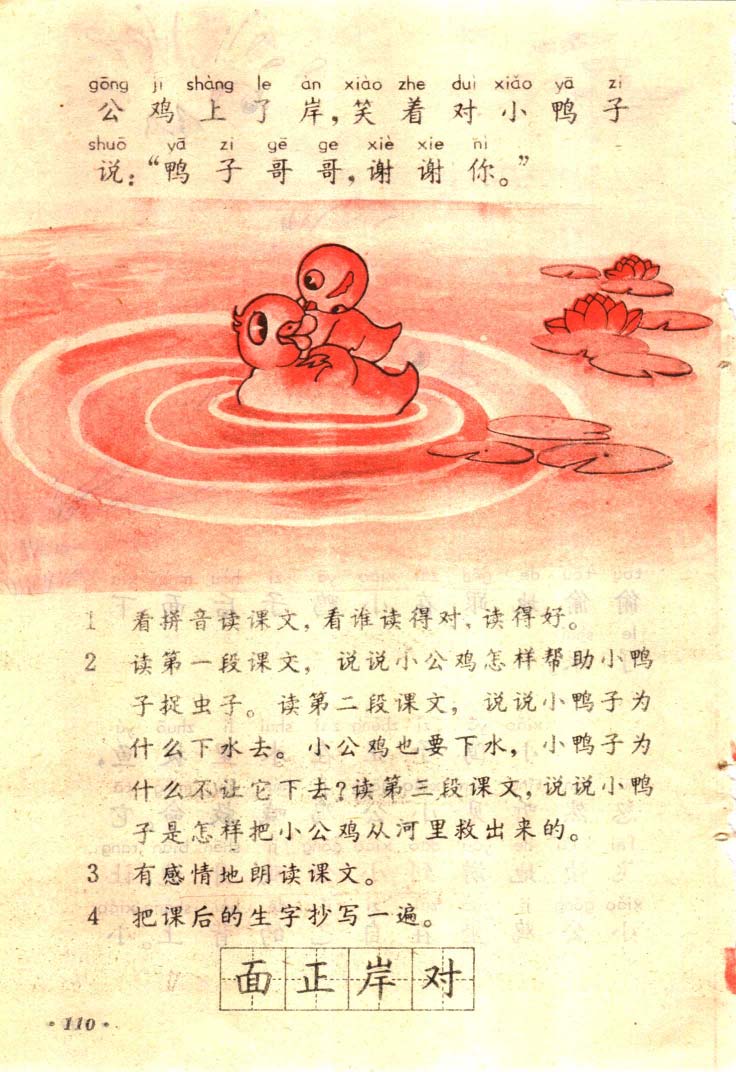 gōng jī shàng le àn xiào zhe duì xiǎo yā zi
公鸡上了岸,笑着对小鸭子
shuō yā zi gē ge xiè xie nǐ
说:“鸭子哥哥,谢谢你。”
1 看拼音读课文,看谁读得对,读得好。
2 读第一段课文, 说说小公鸡怎样帮助小鸭
子捉虫子。读第二段课文, 说说小鸭子为
什么下水去。小公鸡也要下水, 小鸭子为
什么不让它下去?读第三段课文,说说小鸭
子是怎样把小公鸡从河里救出来的。
3 有感情地朗读课文。
4 把课后的生字抄写一遍。
面正岸对
·110·